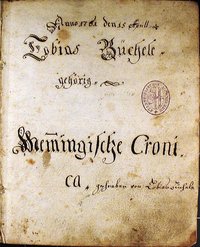 Anno 1761 den 15 Aprill.
Tobias Büchele.
gehörig.
Mem̄ingische Croni.
ca. geschriben von Tobias Büchele